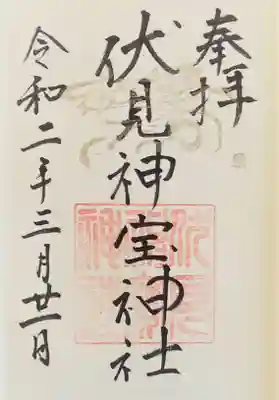 奉拝
伏見神宝神社
令和二年三月廿一日